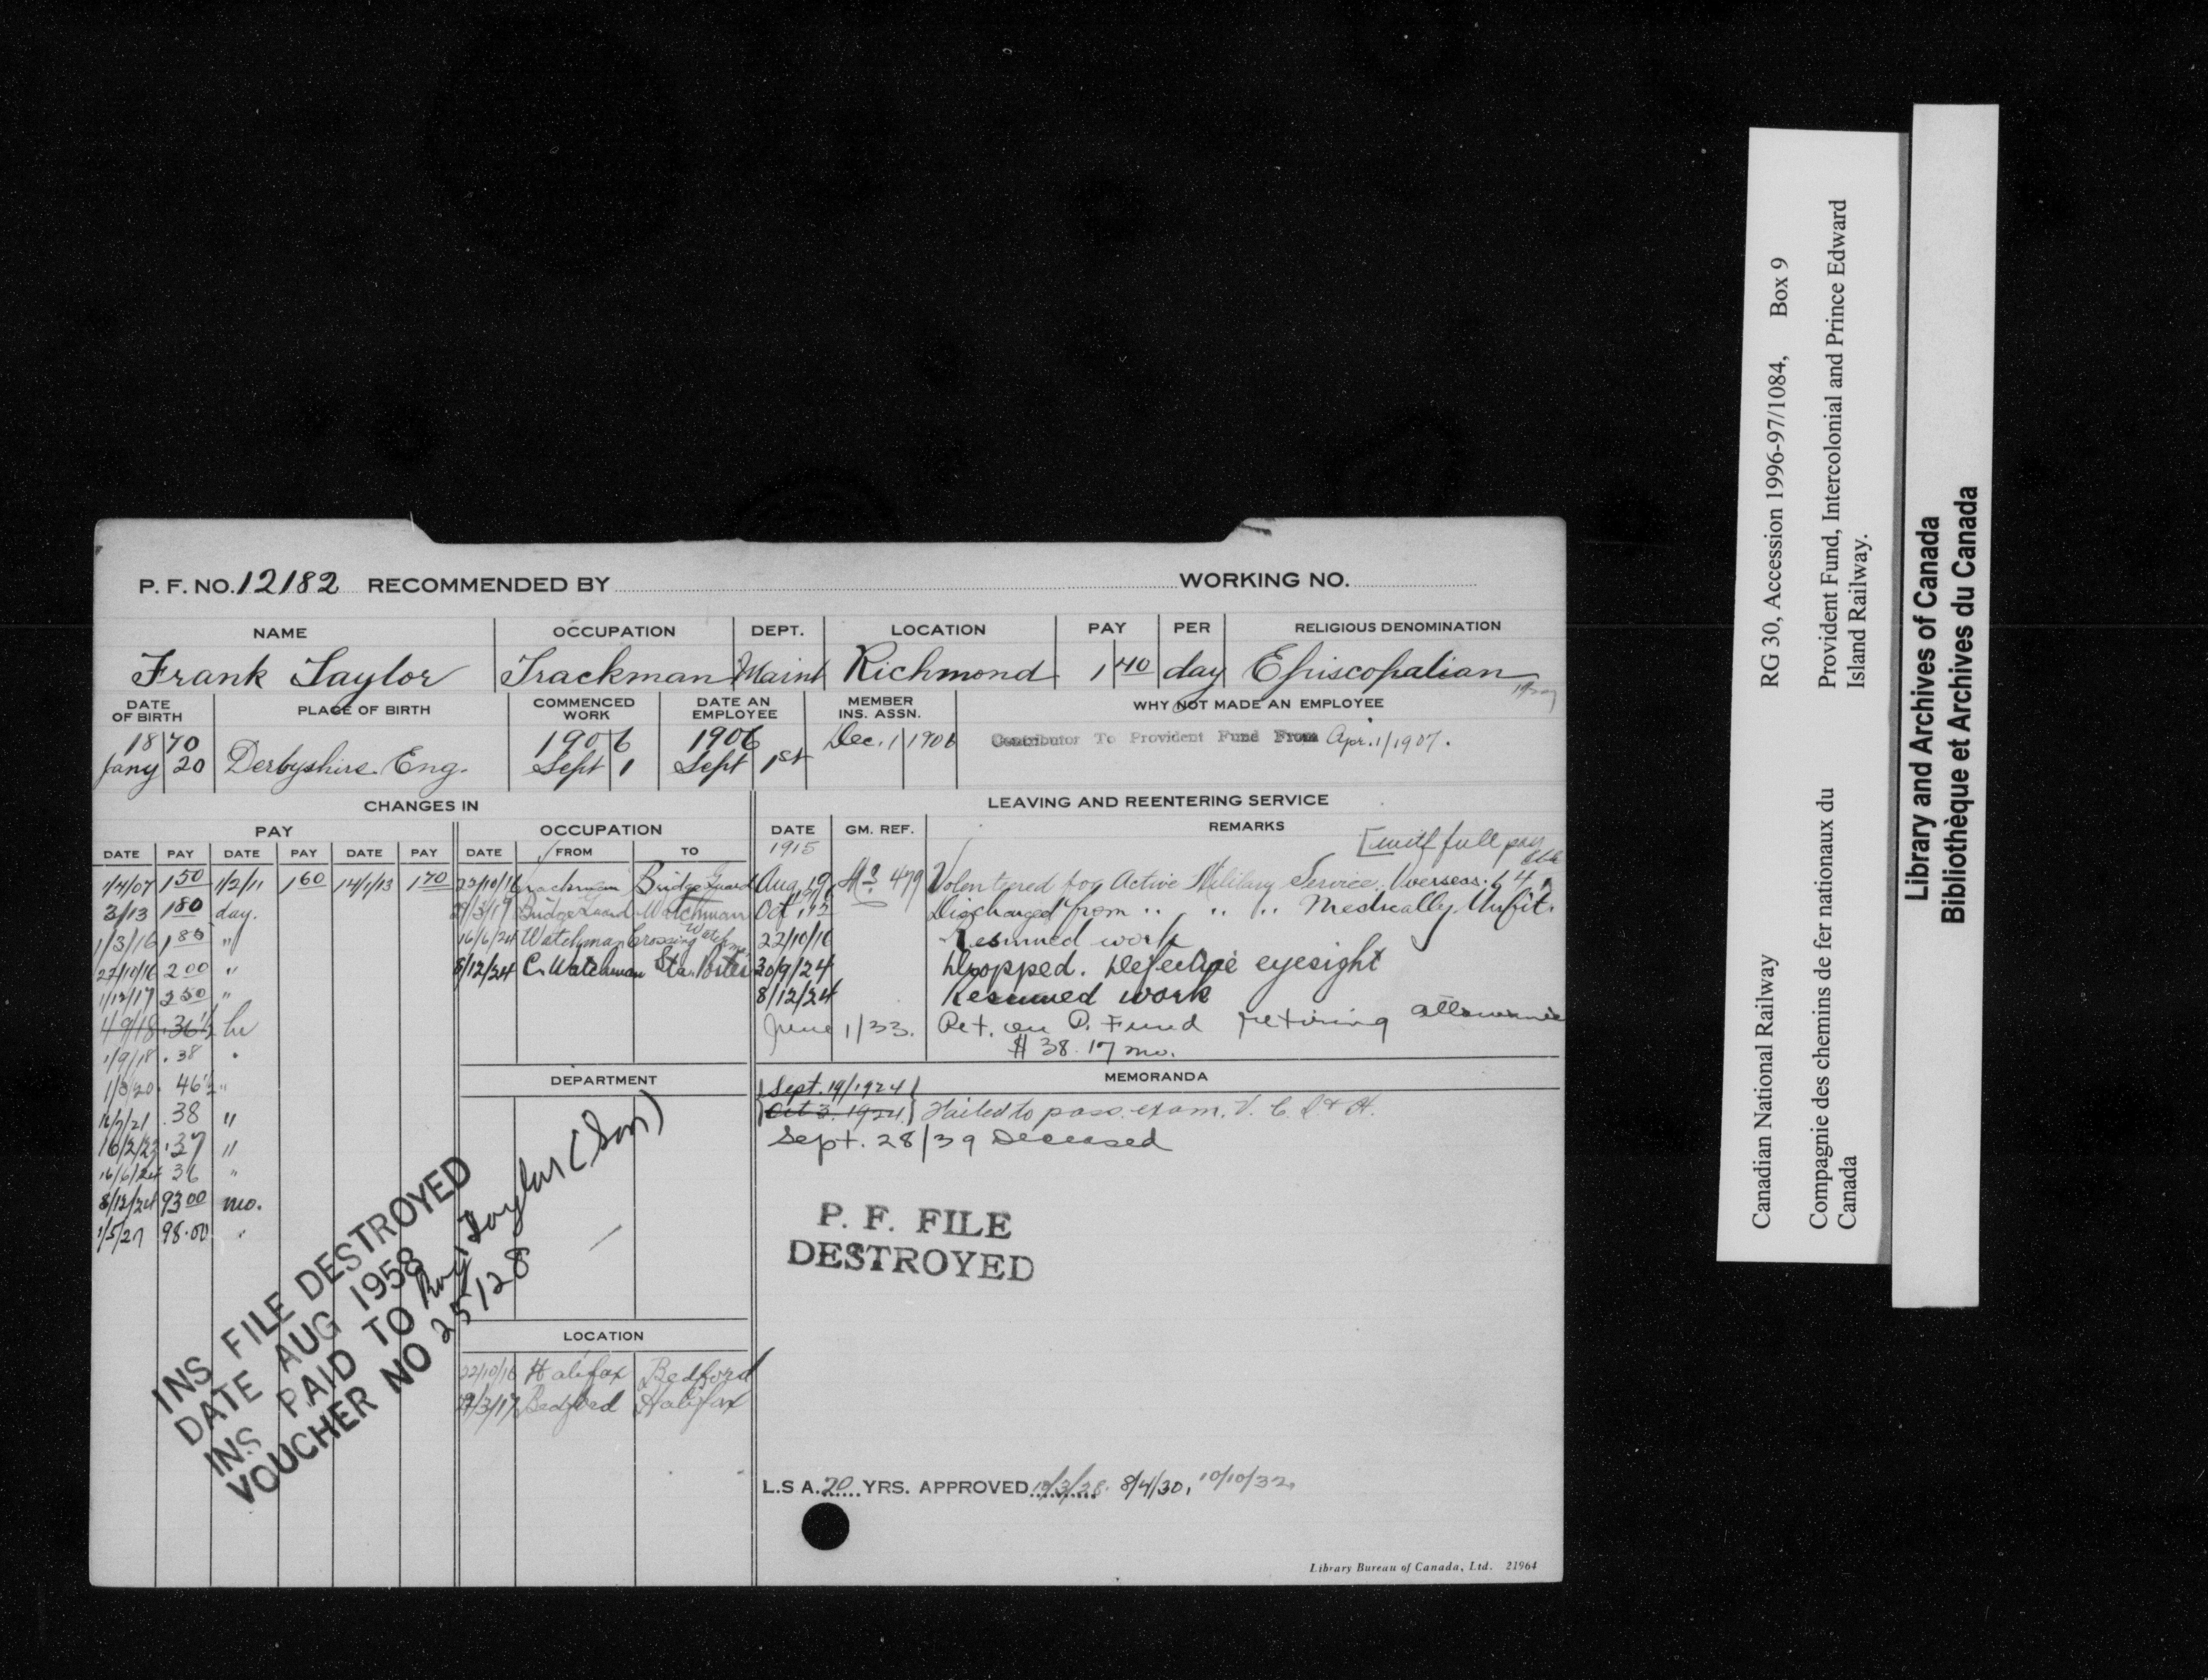 P. F. NO. 12182 RECOMMENDED BY WORKING NO.
NAME OCCUPATION DEPT. LOCATION PAY PER RELIGIOUS DENOMINATION
Frank Taylor Trackman Maint Richmond 1 40 day Episcopalian
DATE OF BIRTH PLACE OF BIRTH COMMENCED WORK DATE AN EMPLOYEE MEMBER INS. ASSN. WHY NOT MADE AN EMPLOYEE
1870 1906 1906 Dec. 1 1906 Contributor To Provident Fund From Apr. 1/1907.
Jany 20 Derbyshire Eng. Sept 1 Sept 1st
CHANGES IN
PAY
DATE PAY DATE PAY DATE PAY
1/4/07 1 50 1/2/11 1 60 14/1/13 1 70
3/13 1 80 day.
1/3/16 1 85 "
22/10/16 2 00 "
1/12/17 2 50 "
4/9/18 .36½ hr
1/9/18 .38 "
1/3/20 .46½ "
16/7/21 .38 "
16/2/23 .37 "
16/6/24 36 "
8/12/24 93 00 mo.
1/5/27 98.00 "
OCCUPATION
DATE FROM TO
22/10/16 Trackman Bridge Guard
29/3/17 Bridge Guard Watchman
16/6/24 Watchman Crossing Watchmn
8/12/24 C. Watchman Sta. Porter
DEPARTMENT
LOCATION
22/10/16 Halifax Bedford
29/3/17 Bedford Halifax
INS FILE DESTROYED
DATE AUG 1958
INS PAID TO Roy Taylor (Son)
VOUCHER NO 25128
LEAVING AND REENTERING SERVICE
DATE GM. REF. REMARKS
1915 [with full pay
Aug. 19 479 Volunteered for Active Military Service. Overseas.
Oct. 12 Discharged from " " " Medically Unfit.
22/10/16 Resumed work
30/9/24 Dropped. Defective eyesight
8/12/24 Resumed work
June 1/33. Ret. on P. Fund retiring allowance
$ 38.17 mo.
MEMORANDA
Sept. 19/1924
Oct 3. 1924 Failed to pass exam. V. C. S & H.
Sept. 28/39 Deceased
P. F. FILE
DESTROYED
L.S A. 20 YRS. APPROVED 19/3/28. 8/4/30, 10/10/32,
Library Bureau of Canada, Ltd. 21964
Canadian National Railway RG 30, Accession 1996-97/1084, Box 9
Compagnie des chemins de fer nationaux du Provident Fund, Intercolonial and Prince Edward
Canada Island Railway.
Library and Archives of Canada
Bibliothèque et Archives du Canada